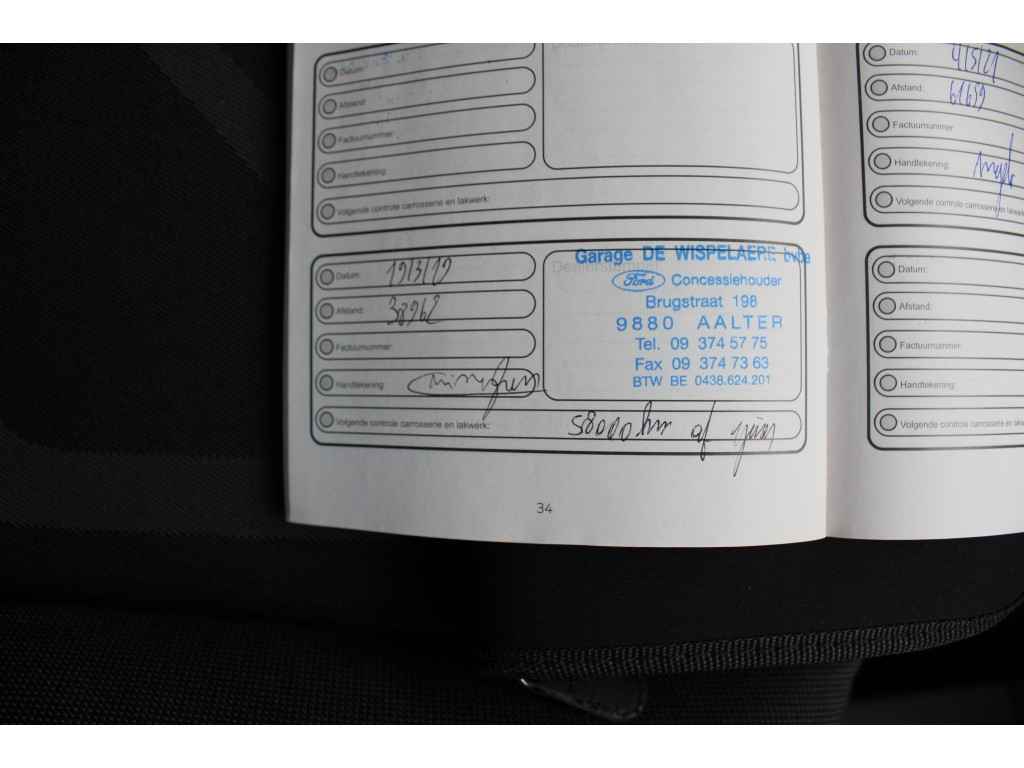 Datum:
Afstand:
Factuurnummer:
Handtekening:
Volgende controle carrosserie en lakwerk:
Datum: 19/3/19
Afstand: 38962
Factuurnummer:
Handtekening:
Volgende controle carrosserie en lakwerk: 58000 km of 1 jaar
Dealerstempel
Garage DE WISPELAERE bvba
Ford Concessiehouder
Brugstraat 198
9880 AALTER
Tel. 09 374 57 75
Fax 09 374 73 63
BTW BE 0438.624.201
34
Datum: 4/5/21
Afstand: 61659
Factuurnummer
Handtekening:
Volgende controle carrosserie en lakwerk
Datum:
Afstand:
Factuurnummer:
Handtekening:
Volgende controle carrosserie en